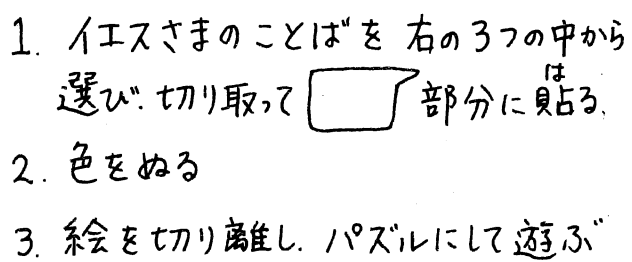 1. イエスさまのことばを 右の3つの中から
選び、切り取って 部分に貼る。
は
2. 色をぬる
3. 絵を切り離し、パズルにして遊ぶ